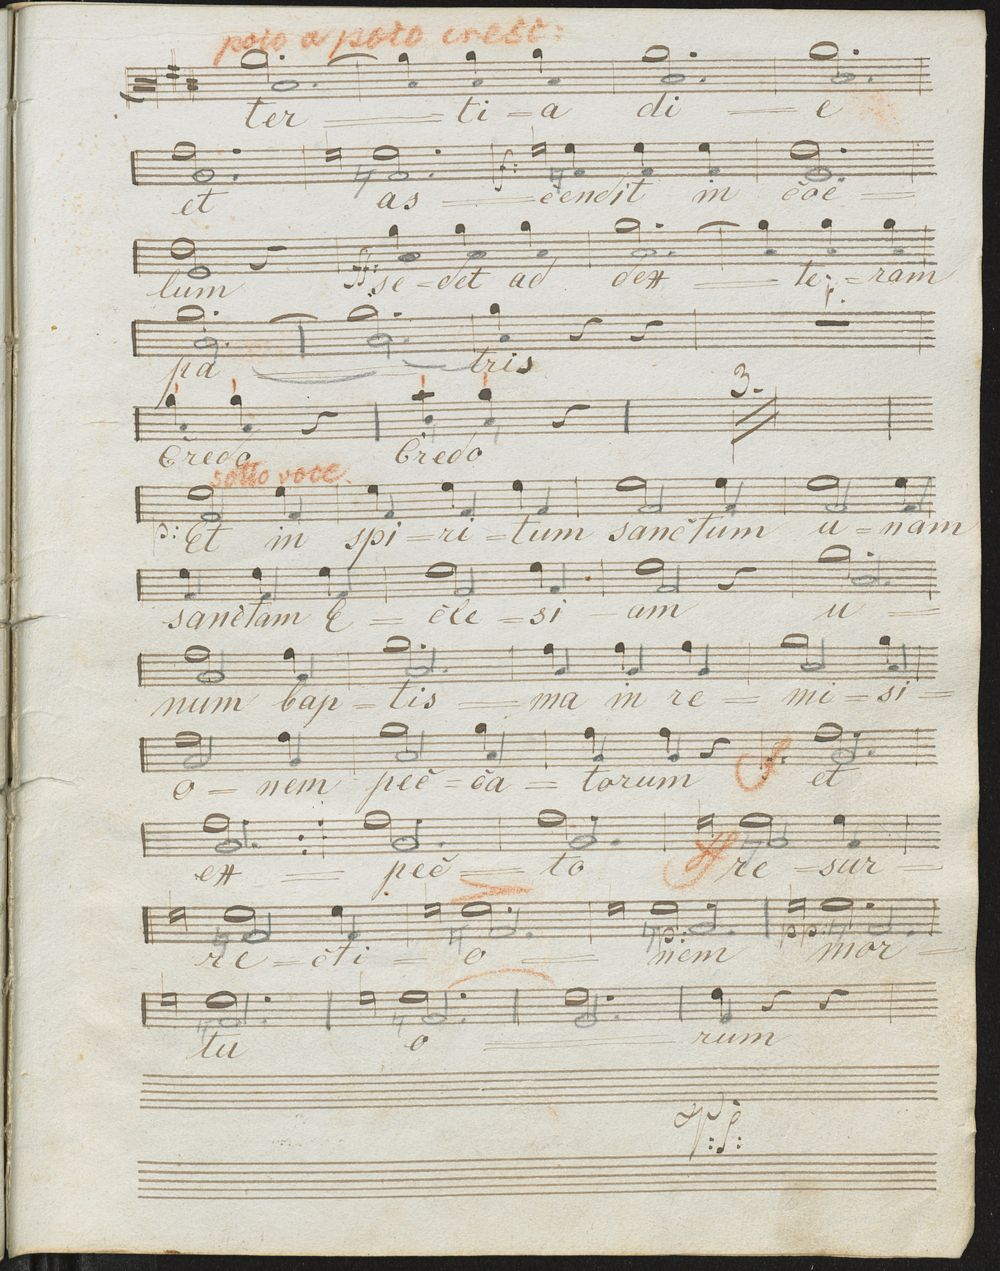 poco a poco cresc:
ter — ti - a di — e
et as — cendit in coe —
ff: se - det ad dex — te - ram
pa — tris
3.
Credo Credo
sotto voce.
p: Et in spi - ri - tum sanctum u - nam
sanctam E - cle - si - am u —
num bap - tis — ma in re — mi - si —
o - nem pec - ca - torum f: et
ex — pec — to ff re - sur —
re - cti — o — p: nem pp mor —
tu o — rum